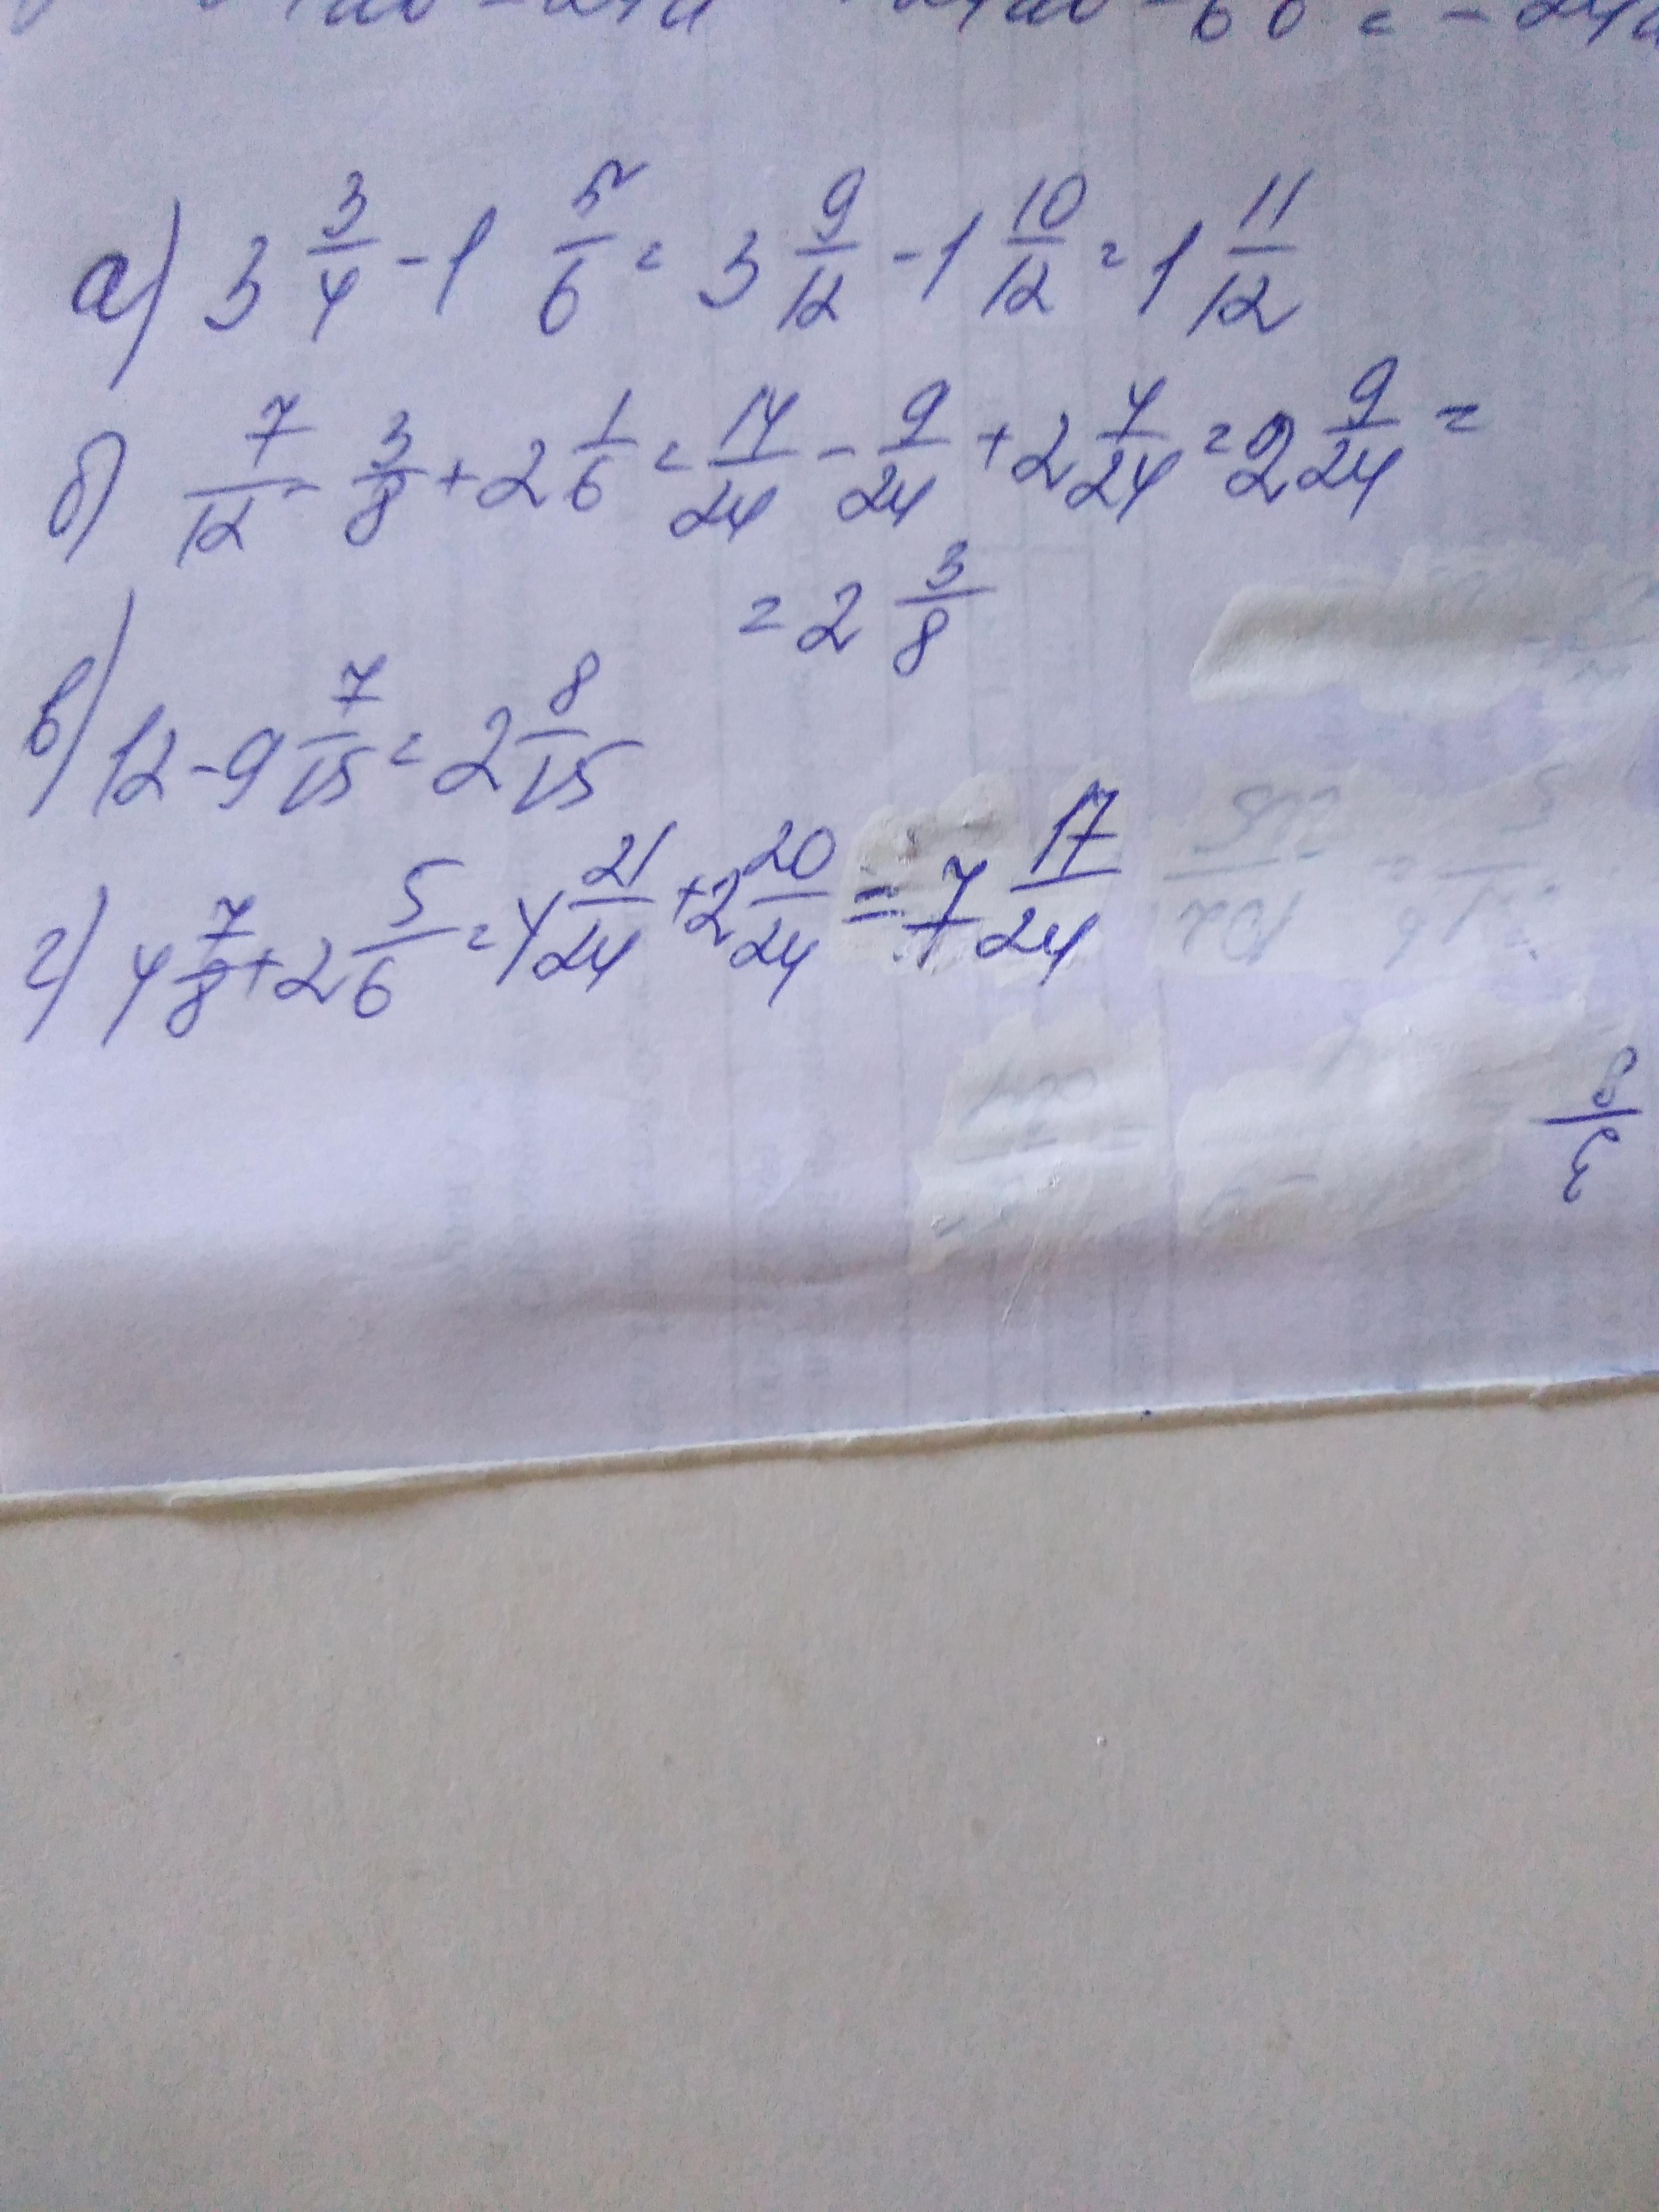 а) 3 3/4 - 1 5/6 = 3 9/12 - 1 10/12 = 1 11/12
б) 7/12 - 3/8 + 2 1/6 = 14/24 - 9/24 + 2 4/24 = 2 9/24 =
= 2 3/8
в) 12 - 9 7/15 = 2 8/15
г) 4 7/8 + 2 5/6 = 4 21/24 + 2 20/24 = 7 17/24
3/8